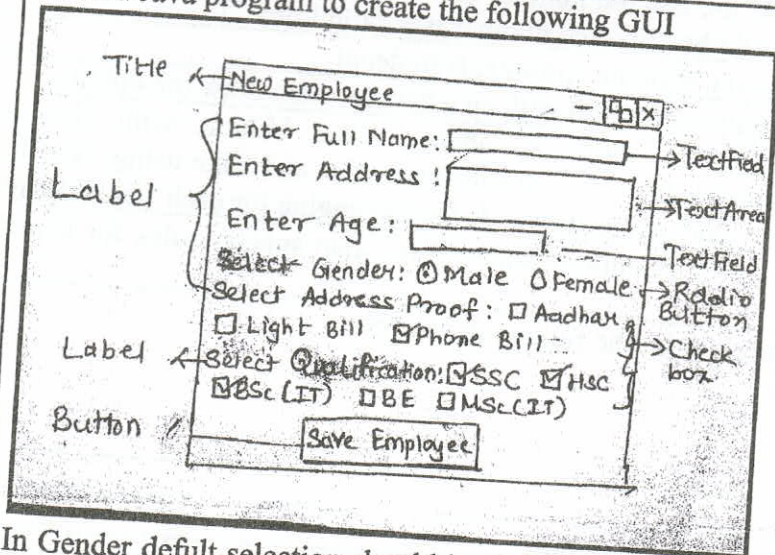 Java program to create the following GUI
Title
New Employee
Enter Full Name:
TextField
Enter Address :
TextArea
Label
Enter Age:
TextField
Select Gender: Male Female
Radio Button
Select Address Proof: Aadhar
Light Bill Phone Bill
Check box
Label
Select Qualification: SSC HSC
BSc (IT) BE MSc(IT)
Button
Save Employee
In Gender defult selection